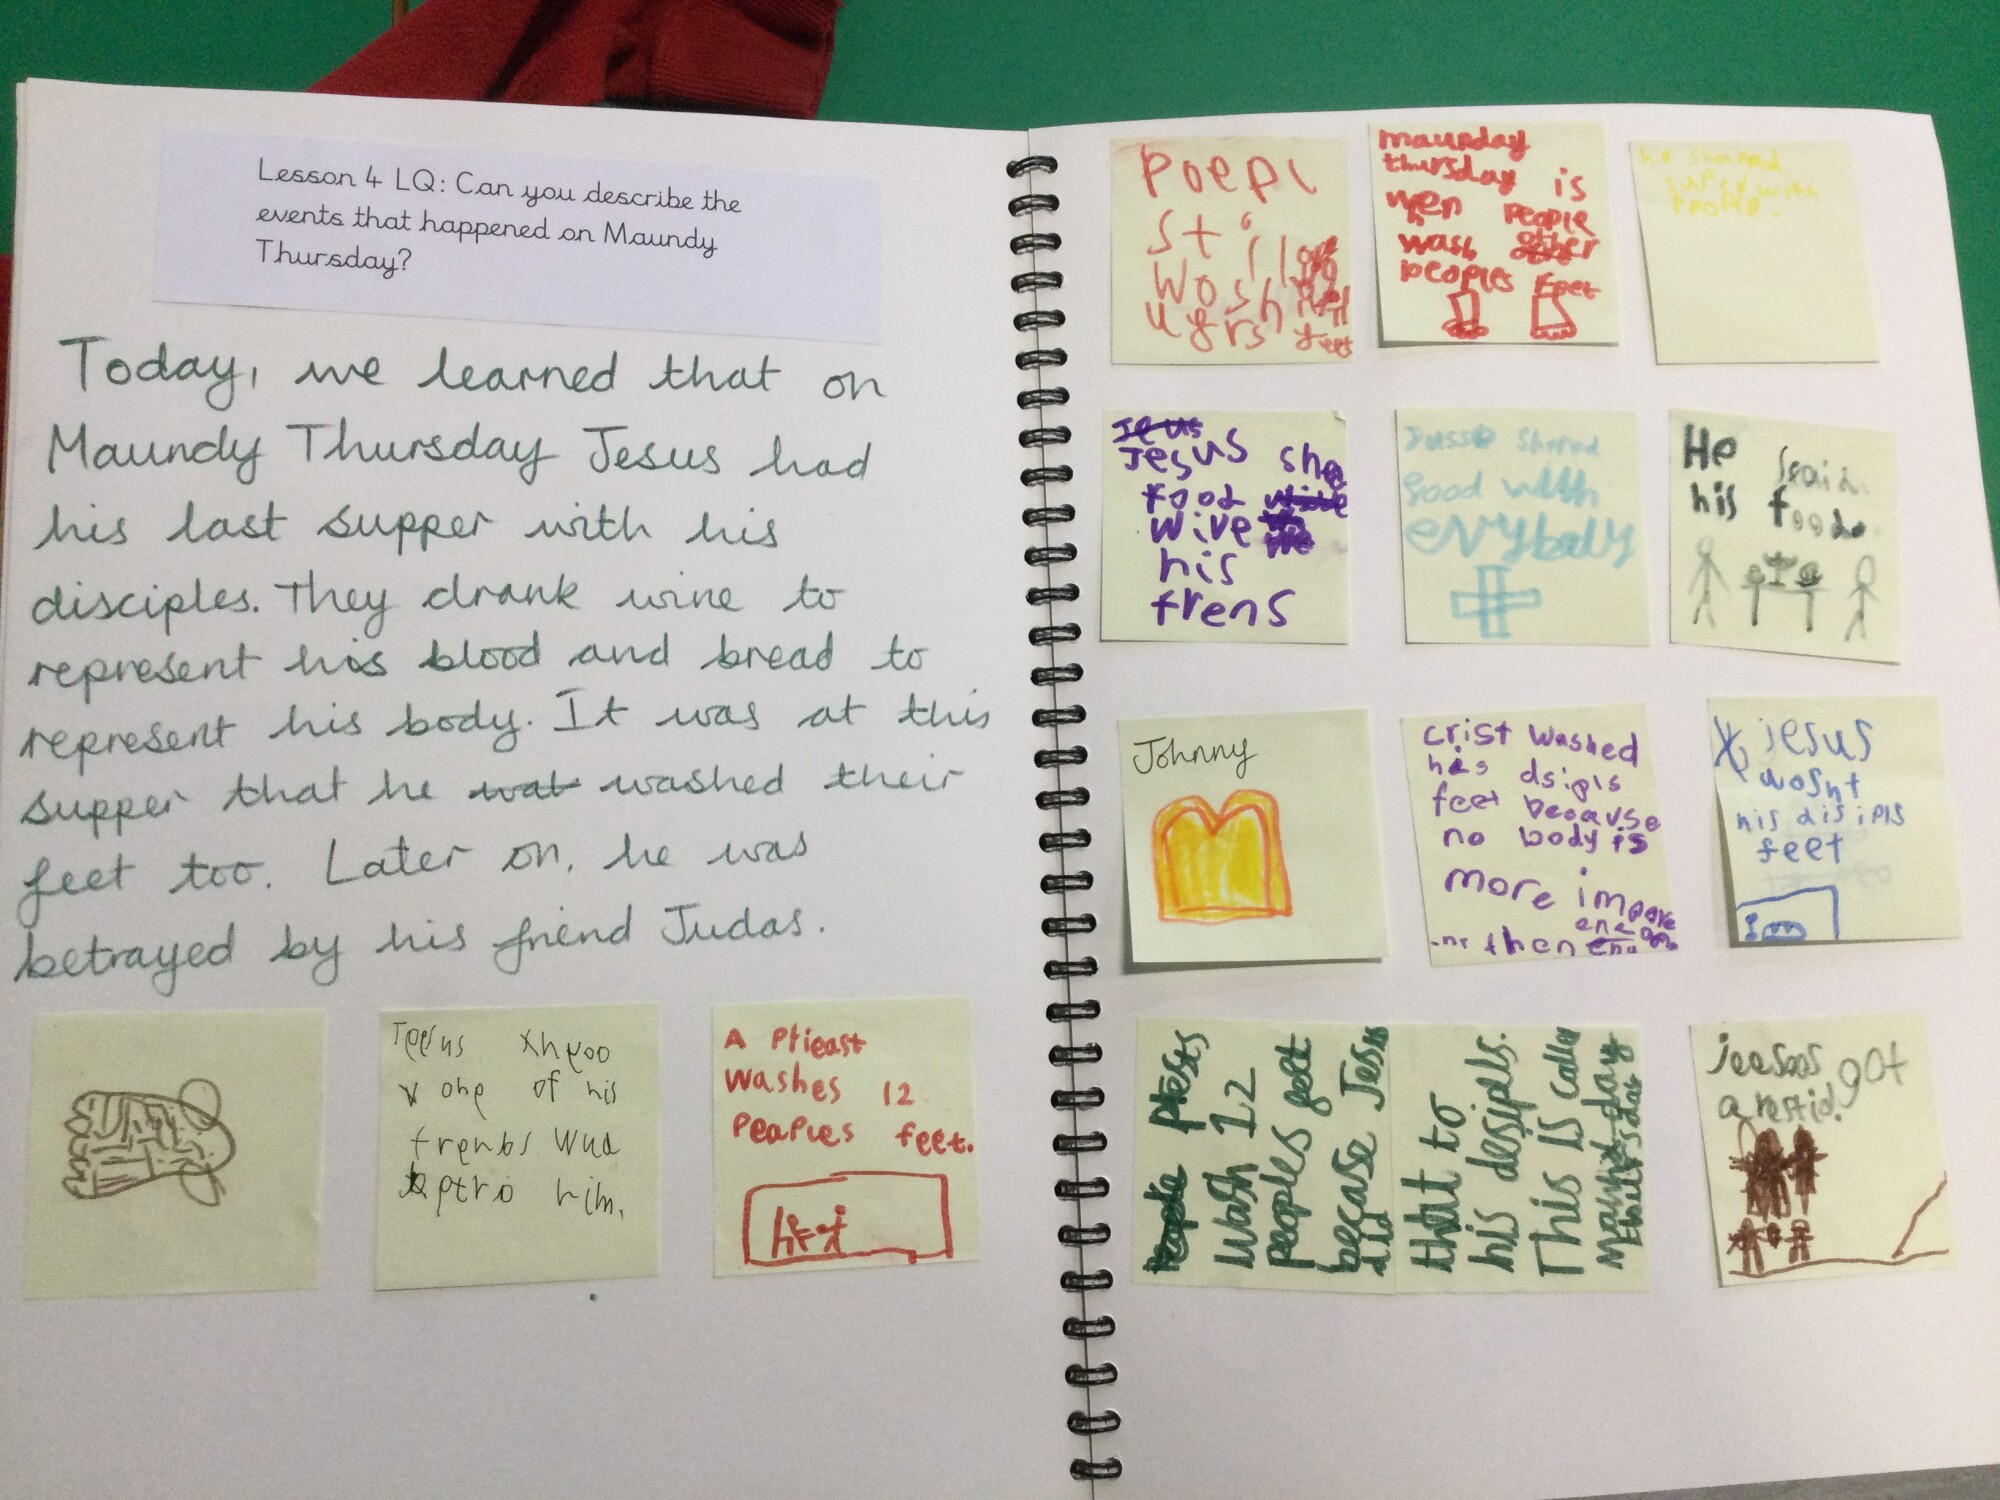 Lesson 4 LQ: Can you describe the
events that happened on Maundy
Thursday?
Today, we learned that on
Maundy Thursday Jesus had
his last supper with his
disciples. They drank wine to
represent his blood and bread to
represent his body. It was at this
supper that he wat washed their
feet too. Later on, he was
betrayed by his friend Judas.
one of his
him.
A Ptieast
washes 12
Peaples feet.
Poepl
still
wosh
feet
maunday
thursday is
when People
wash other
peoples Feet
he shared
with
People.
Jesus
Jesus
food
wive
his
frens
shared
good with
He
his food.
Johnny
crist washed
his dsipls
feet because
no body is
more
then
jesus
wosht
his disipls
feet
Wash 12
peoples
because Jesus
did
that to
his desipls.
This is
jeesoos got
arestid.